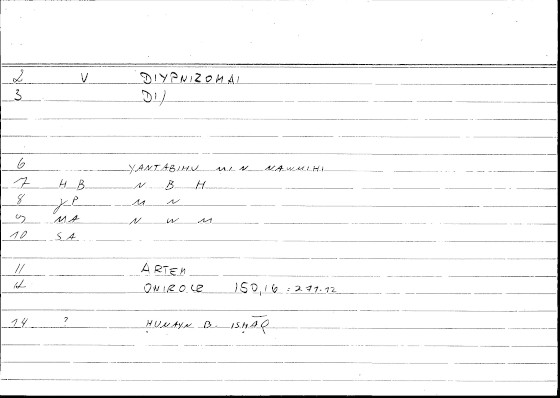 2 V DIYPNIZOMAI
3 DI)
6 YANTABIHU MIN NAWMIHI
7 H B N B H
8 γP M N
9 MA N W M
10 SA
11 ARTEM
ONIROCR 150,16 : 271.12
14 ? ḤUNAYN B. ISḤĀQ